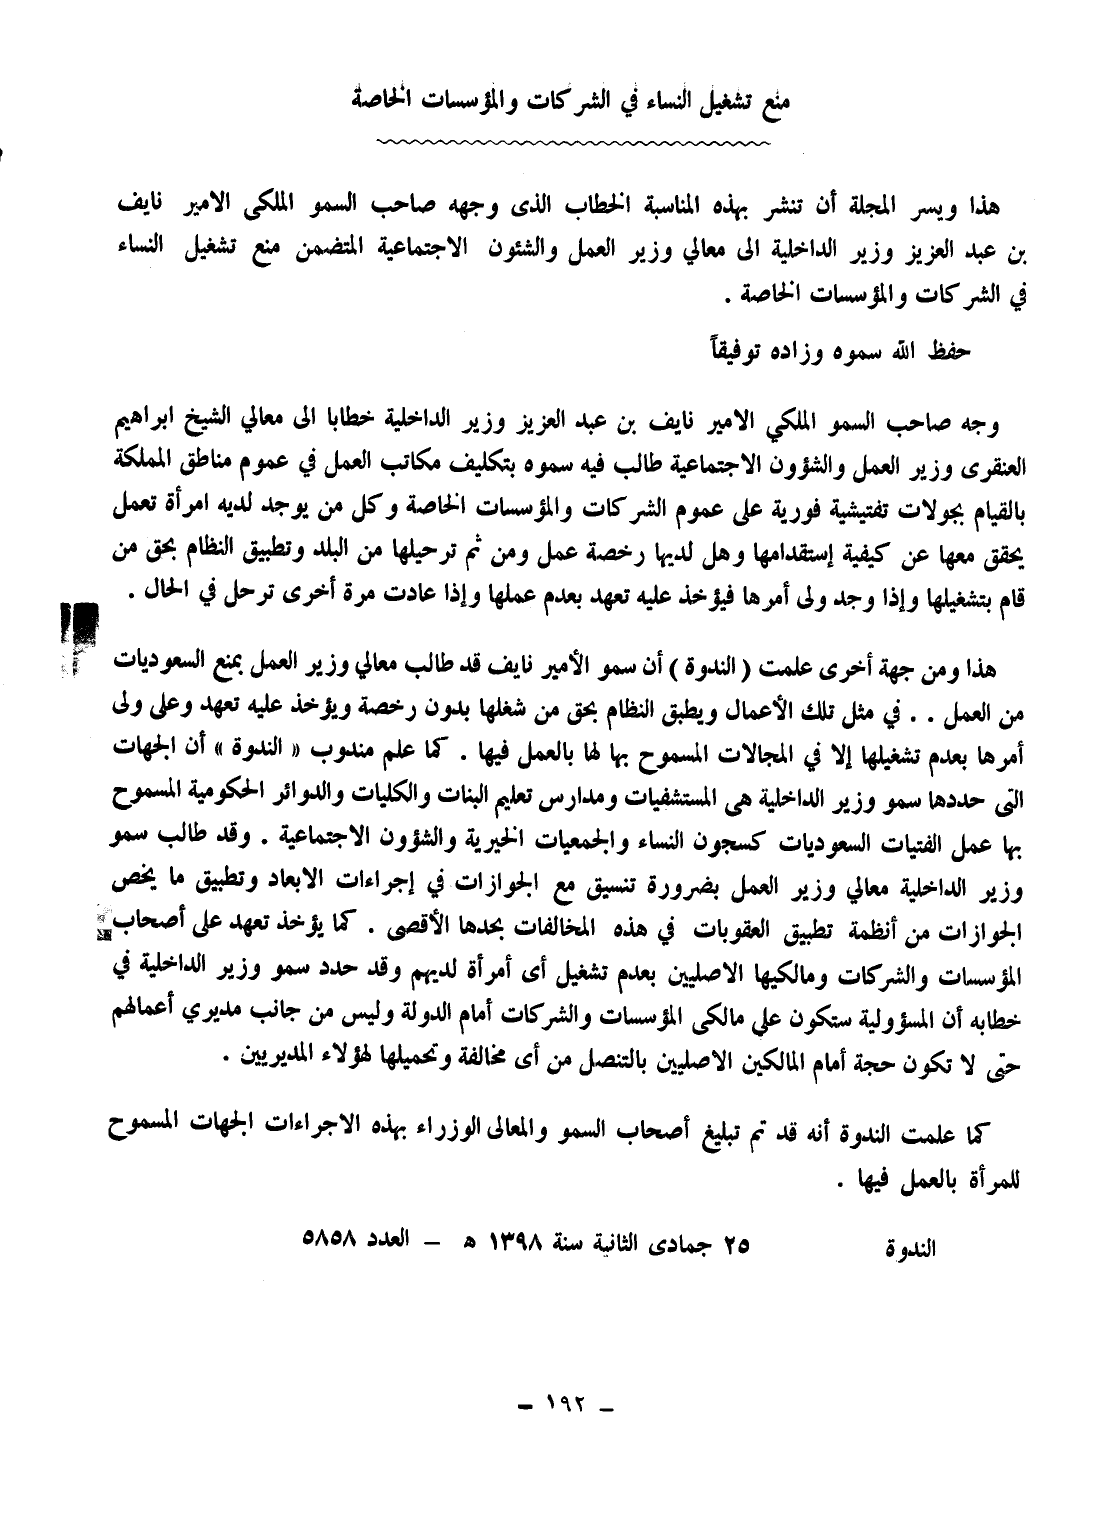 منع تشغيل النساء في الشركات والمؤسسات الخاصة
هذا ويسر المجلة أن تنشر بهذه المناسبة الخطاب الذى وجهه صاحب السمو الملكى الامير نايف
بن عبد العزيز وزير الداخلية الى معالي وزير العمل والشئون الاجتماعية المتضمن منع تشغيل النساء
في الشركات والمؤسسات الخاصة .
حفظ الله سموه وزاده توفيقاً
وجه صاحب السمو الملكي الامير نايف بن عبد العزيز وزير الداخلية خطابا الى معالي الشيخ ابراهيم
العنقرى وزير العمل والشؤون الاجتماعية طالب فيه سموه بتكليف مكاتب العمل في عموم مناطق المملكة
بالقيام بجولات تفتيشية فورية على عموم الشركات والمؤسسات الخاصة وكل من يوجد لديه امرأة تعمل
يحقق معها عن كيفية إستقدامها وهل لديها رخصة عمل ومن ثم ترحيلها من البلد وتطبيق النظام بحق من
قام بتشغيلها وإذا وجد ولى أمرها فيؤخذ عليه تعهد بعدم عملها وإذا عادت مرة أخرى ترحل في الحال .
هذا ومن جهة أخرى علمت ( الندوة ) أن سمو الأمير نايف قد طالب معالي وزير العمل بمنع السعوديات
من العمل . . في مثل تلك الأعمال ويطبق النظام بحق من شغلها بدون رخصة ويؤخذ عليه تعهد وعلى ولى
أمرها بعدم تشغيلها إلا في المجالات المسموح بها لها بالعمل فيها . كما علم مندوب « الندوة » أن الجهات
التى حددها سمو وزير الداخلية هى المستشفيات ومدارس تعليم البنات والكليات والدوائر الحكومية المسموح
بها عمل الفتيات السعوديات كسجون النساء والجمعيات الخيرية والشؤون الاجتماعية . وقد طالب سمو
وزير الداخلية معالي وزير العمل بضرورة تنسيق مع الجوازات في إجراءات الابعاد وتطبيق ما يخص
الجوازات من أنظمة تطبيق العقوبات في هذه المخالفات بحدها الأقصى . كما يؤخذ تعهد على أصحاب
المؤسسات والشركات ومالكيها الاصليين بعدم تشغيل أى أمرأة لديهم وقد حدد سمو وزير الداخلية في
خطابه أن المسؤولية ستكون على مالكى المؤسسات والشركات أمام الدولة وليس من جانب مديري أعمالهم
حتى لا تكون حجة أمام المالكين الاصليين بالتنصل من أى مخالفة وتحميلها لهؤلاء المديريين .
كما علمت الندوة أنه قد تم تبليغ أصحاب السمو والمعالى الوزراء بهذه الاجراءات الجهات المسموح
للمرأة بالعمل فيها .
الندوة ٢٥ جمادى الثانية سنة ١٣٩٨ هـ – العدد ٥٨٥٨
– ١٩٢ –